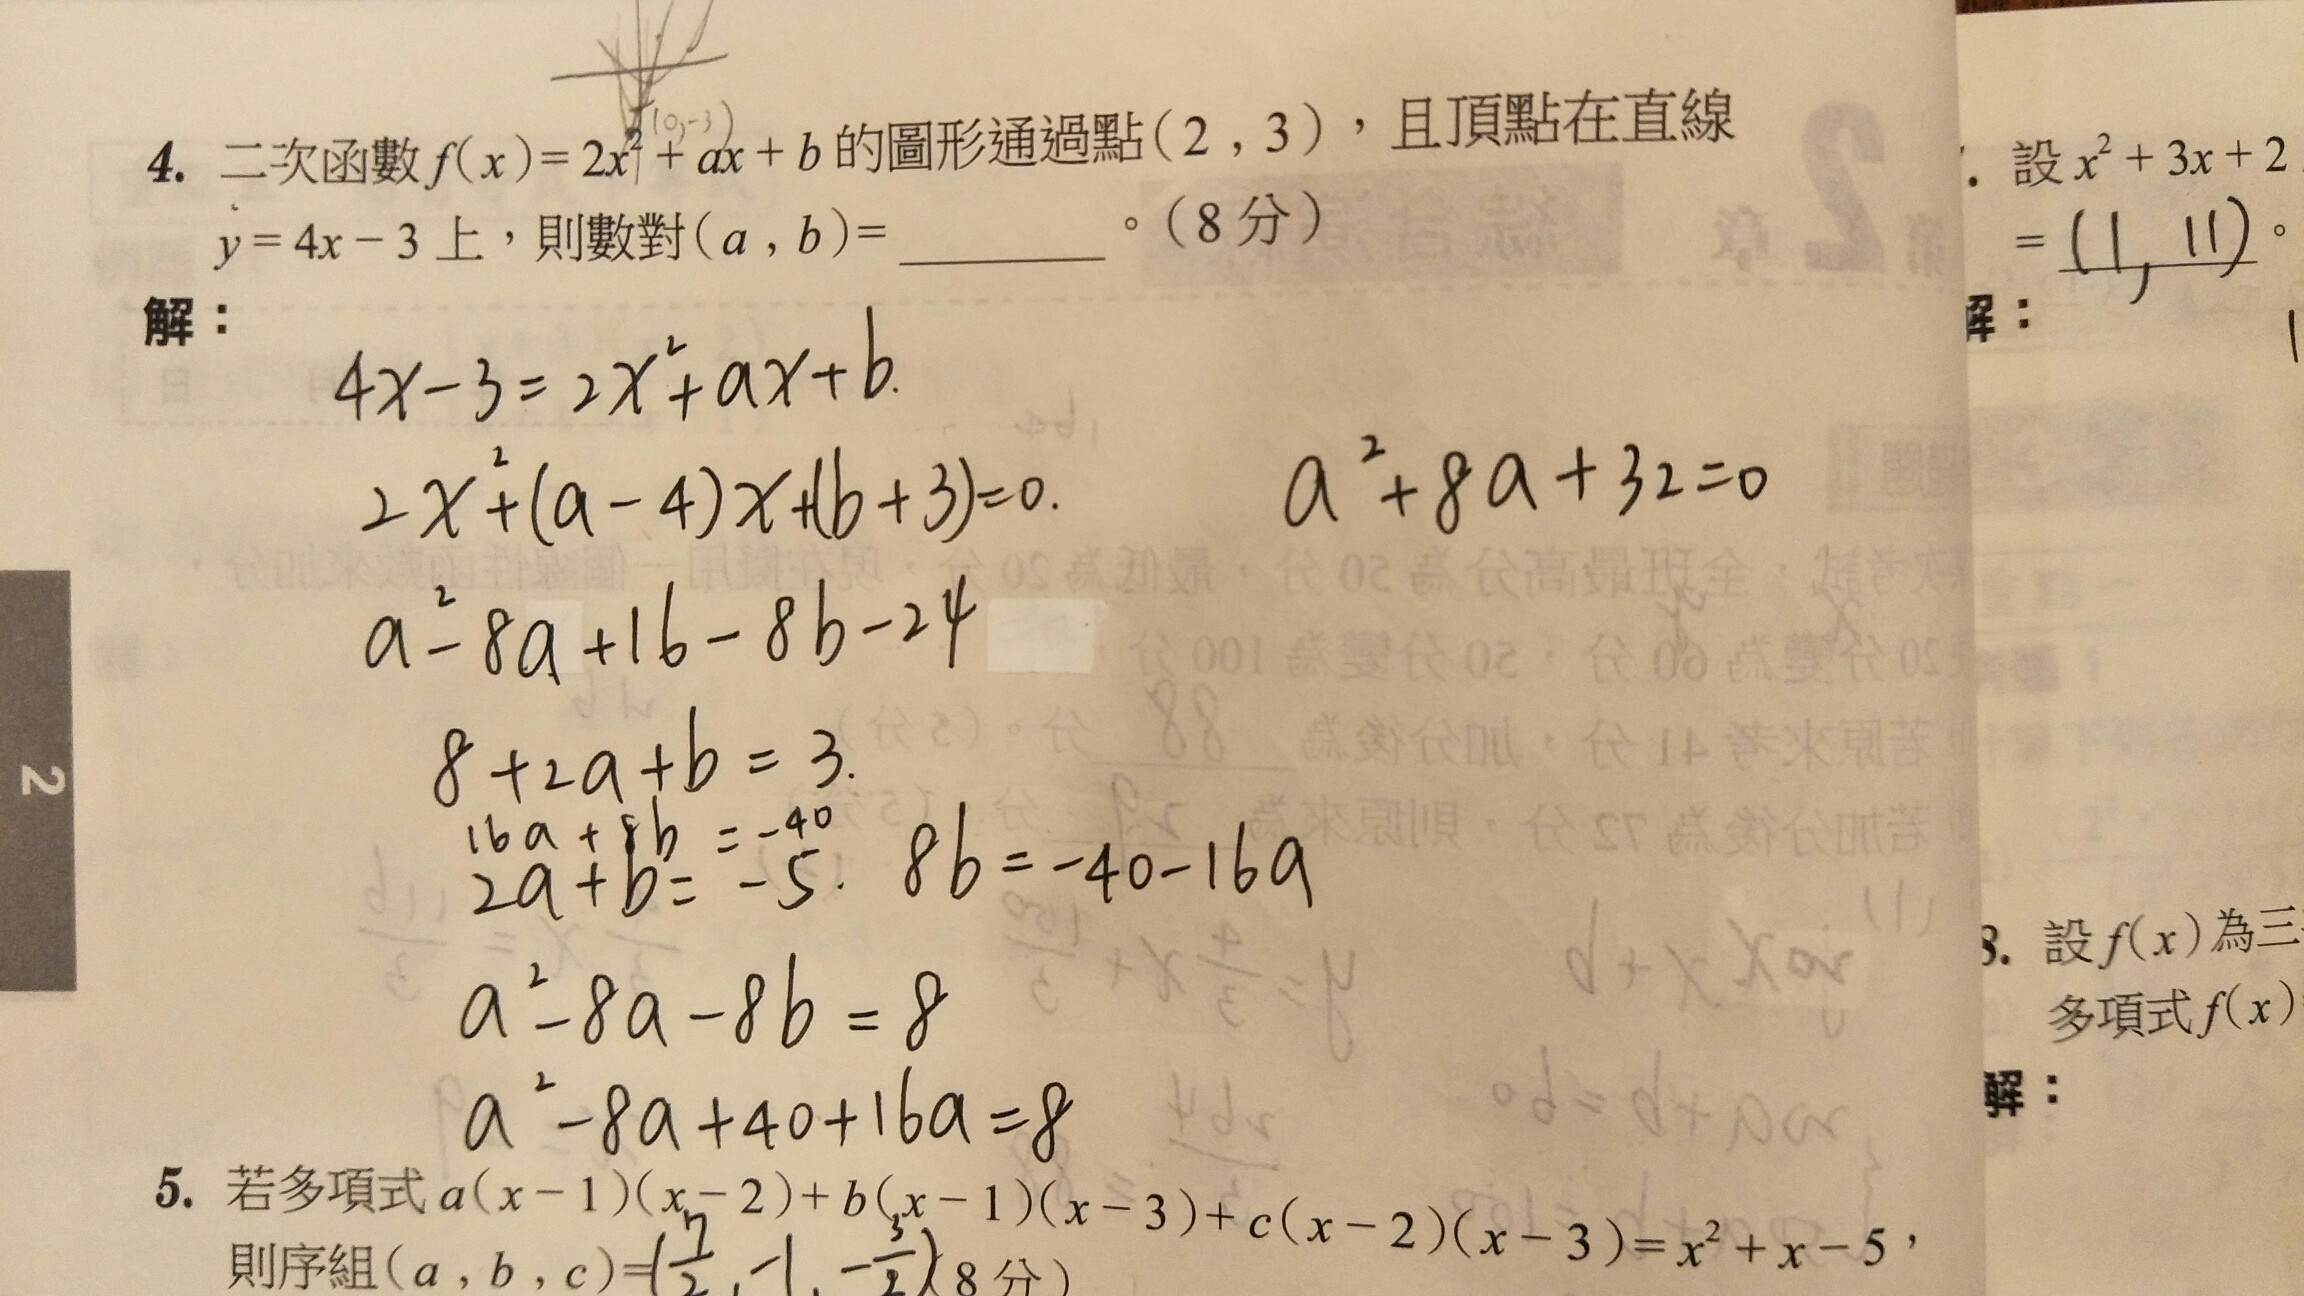 (0,-3)
4. 二次函數 f(x)=2x²+ax+b 的圖形通過點(2,3),且頂點在直線
y=4x-3 上,則數對(a,b)= ______ 。(8分)
解:
4x-3=2x²+ax+b.
2x²+(a-4)x+(b+3)=0.
a²+8a+32=0
a²-8a+16-8b-24
8+2a+b=3.
16a+8b=-40
2a+b=-5.
8b=-40-16a
a²-8a-8b=8
a²-8a+40+16a=8
5. 若多項式 a(x-1)(x-2)+b(x-1)(x-3)+c(x-2)(x-3)=x²+x-5,
則序組(a,b,c)=(7/2,-1,-3/2)(8分)
2
設 x²+3x+2
=(1,11)。
解:
1
8. 設 f(x)為三
多項式 f(x)
解: